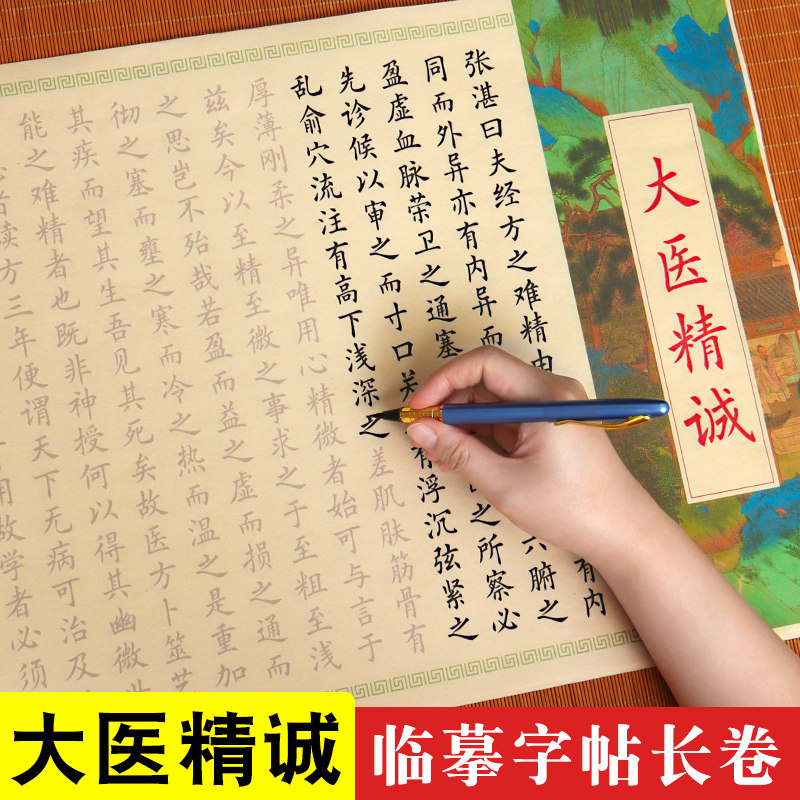 大医精诚
张湛曰夫经方之难精由
有内
同而外异亦有内异而
六腑之
盈虚血脉荣卫之通塞
之所察必
先诊候以审之而寸口关
有浮沉弦紧之
乱俞穴流注有高下浅深之差肌肤筋骨有
厚薄刚柔之异唯用心精微者始可与言于
兹矣今以至精至微之事求之于至粗至浅
之思岂不殆哉若盈而益之虚而损之通而
彻之塞而壅之寒而冷之热而温之是重加
其疾而望其生吾见其死矣故医方卜筮艺
能之难精者也既非神授何以得其幽微
者读方三年便谓天下无病可治及
用故学者必须
大医精诚
临摹字帖长卷